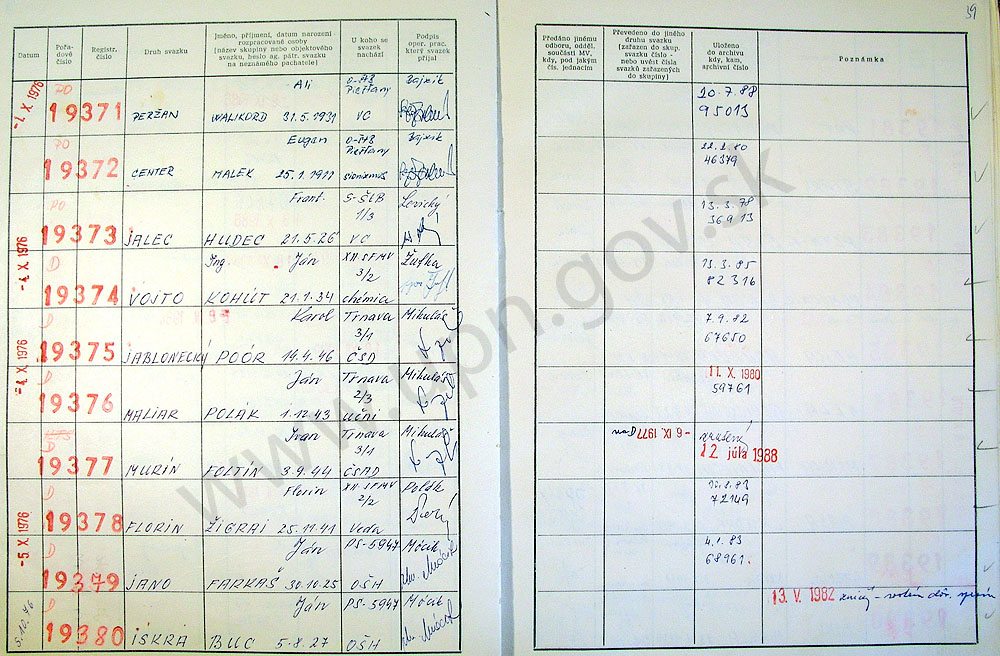 39
Datum
Pořa-
dové
číslo
Registr.
číslo
Druh svazku
Jméno, příjmení, datum narození
rozpracované osoby
(název skupiny nebo objektového
svazku, heslo ag. pátr. svazku
na neznámého pachatele)
U koho se
svazek
nachází
Podpis
oper. prac.
který svazek
přijal
Předáno jinému
odboru, odděl.
součásti MV,
kdy, pod jakým
čís. jednacím
Převedeno do jiného
druhu svazku
(zařazen do skup.
svazku číslo -
nebo uvést čísla
svazků zařazených
do skupiny)
Uloženo
do archivu
kdy, kam,
archivní číslo
Poznámka
-1. X. 1976
PO
Ali
Piešťany
Bajzik
20.7.88
19371
PERŽAN
WALIKORD 31.5.1931
VC
95013
PO
Eugen
Piešťany
Bajzik
46379
19372
CENTER
MALEK 25.1.1911
sionizmus
PO
Frant.
S-ŠtB
1/3
Levický
13.3.78
36913
19373
JALEC
HUDEC 21.5.26
VC
-4. X. 1976
D
Ing. Ján
XII. SFMV
3/2
Žufka
15.3.85
82316
19374
VOJTO
KOHÚT 21.1.34
chémia
D
Karol
Trnava
3/1
Mikuláš
7.9.82
67650
19375
JABLONECKÝ
POÓR 14.4.46
ČSD
-4. X. 1976
D
Ján
Trnava
2/3
Mikuláš
11. X. 1980
59761
19376
MALIAR
POLÁK 1.12.43
učni
D
Ivan
Trnava
3/1
Mikuláš
na D
-6. IX. 1977
zrušený
12. júla 1988
19377
MURÍN
FOLTÍN 3.9.44
ČSAD
D
Florin
XII. SFMV
2/2
Polák
72149
19378
FLORIN
ŽIGRAI 25.11.41
Veda
-5. X. 1976
D
Ján
PS-5947
Mócik
4.1.83
68961.
19379
JANO
FARKAŠ 30.10.25
OŠH
5.10.76
D
Ján
PS-5947
Mócik
13. V. 1982
19380
ISKRA
BUC 5.8.27
OŠH
www.upn.gov.sk